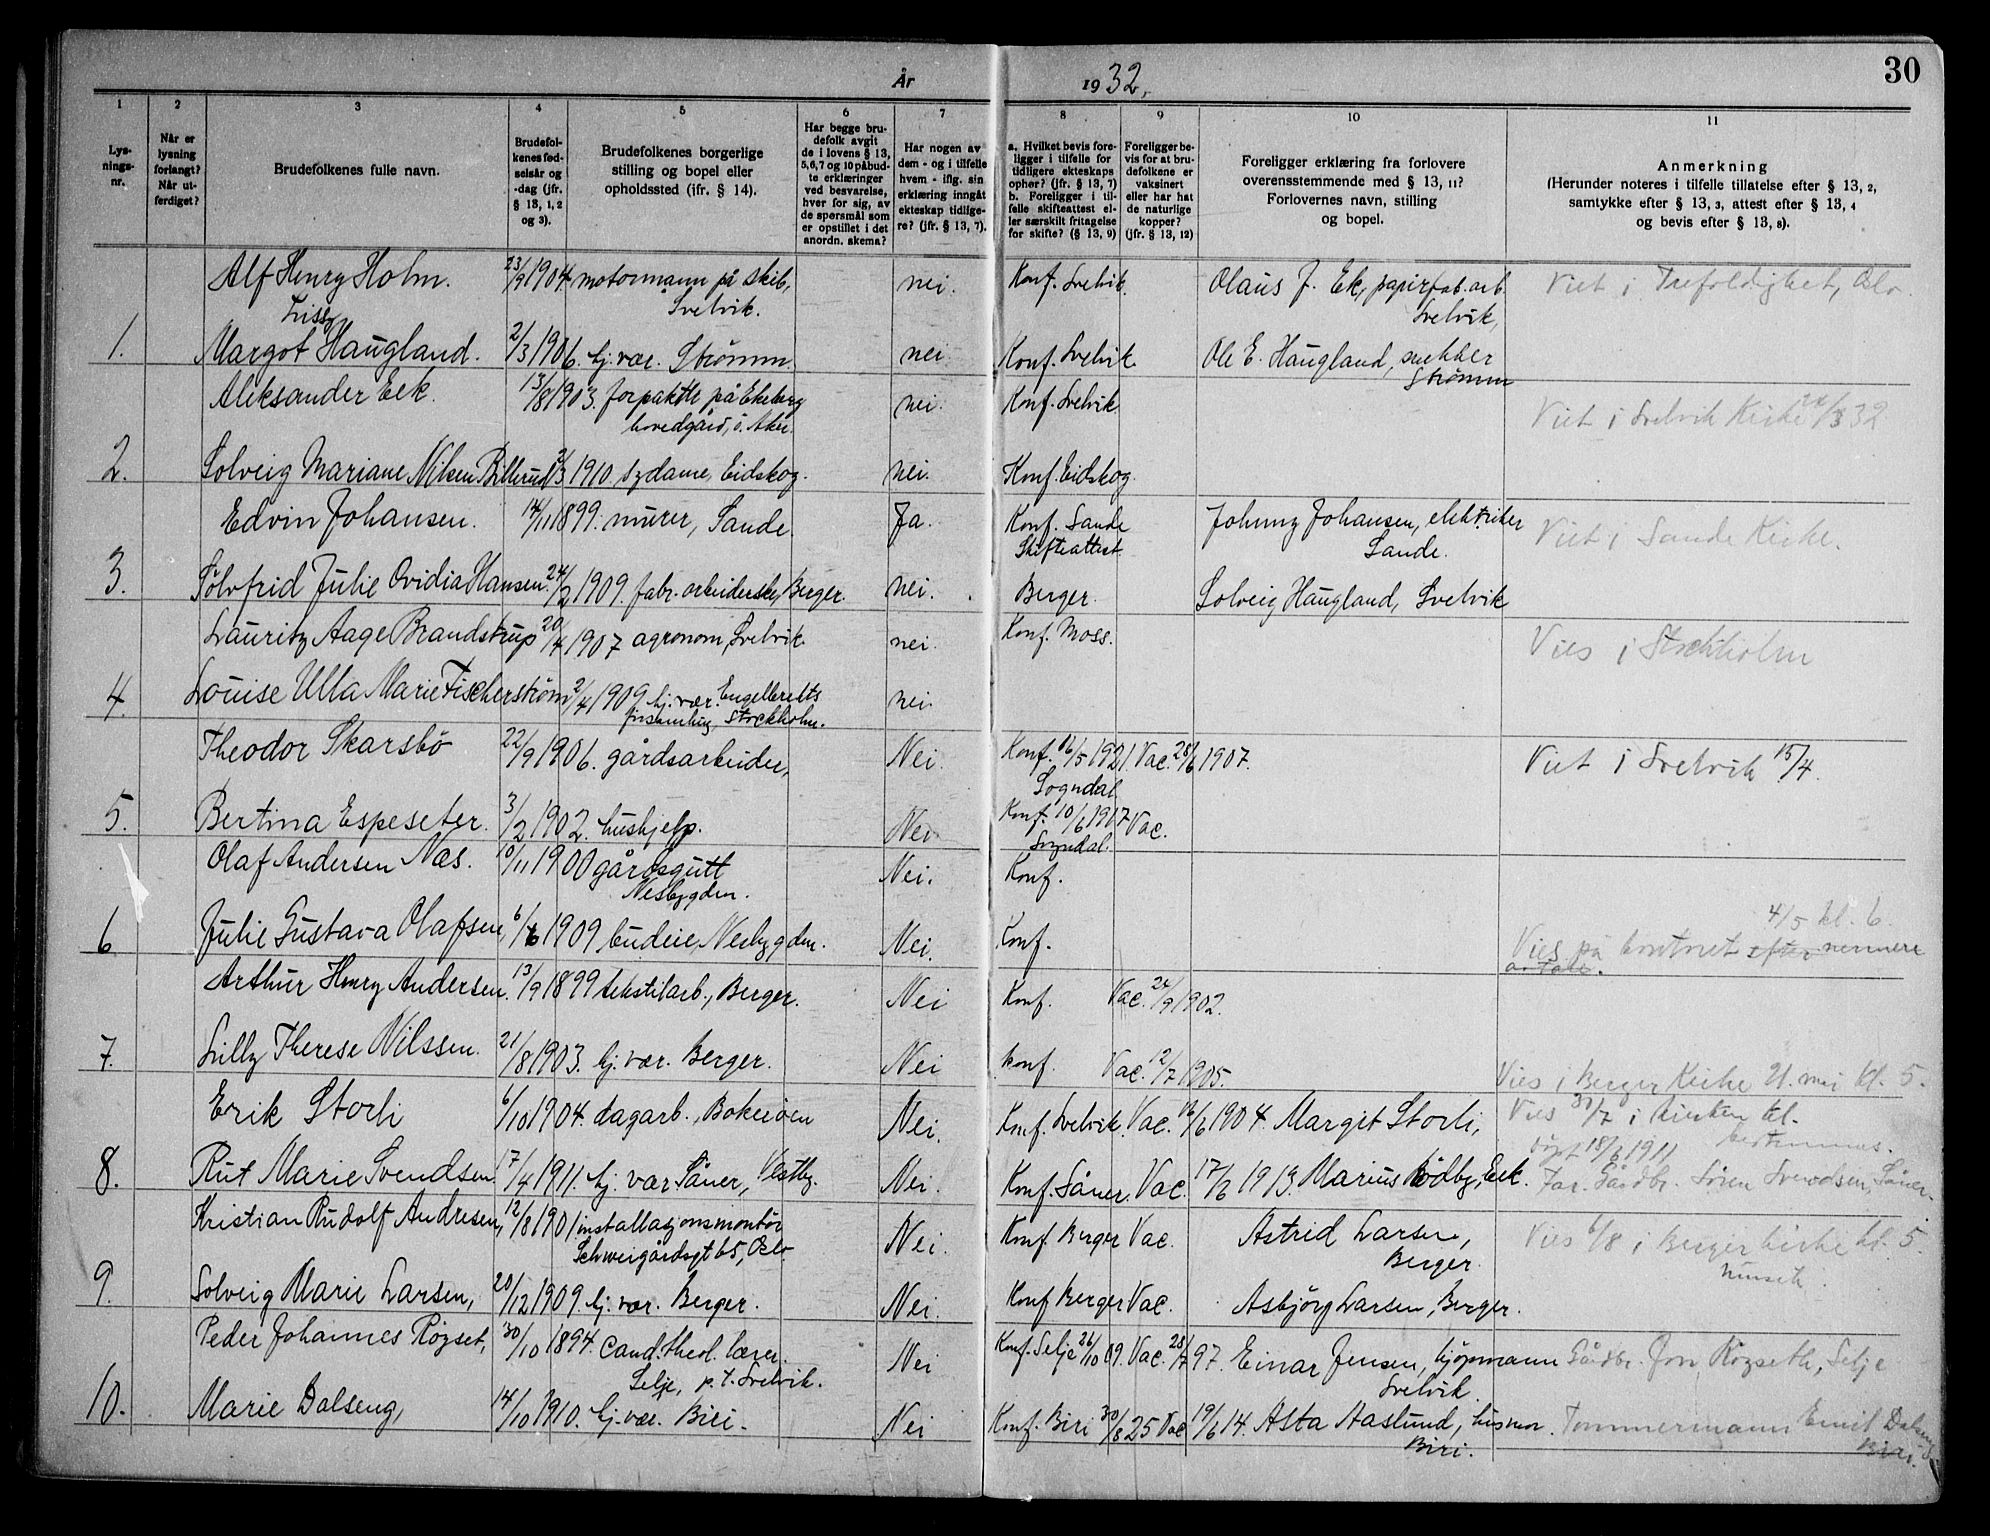 30
År 1932.
1 2 3 4 5 6 7 8 9 10 11
Lysningsnr.
Når er lysning forlangt? Når utferdiget?
Brudefolkenes fulle navn.
Brudefolkenes fødselsår og -dag (jfr. § 13, 1, 2 og 3).
Brudefolkenes borgerlige stilling og bopel eller opholdssted (ifr. § 14).
Har begge brudefolk avgit de i lovens § 13, 5,6,7 og 10 påbudte erklæringer ved besvarelse, hver for sig, av de spørsmål som er opstillet i det anordn. skema?
Har nogen av dem - og i tilfelle hvem - iflg. sin erklæring inngåt ekteskap tidligere? (jfr. § 13, 7).
a. Hvilket bevis foreligger i tilfelle for tidligere ekteskaps ophør? (jfr. § 13, 7) b. Foreligger i tilfelle skifteattest eller særskilt fritagelse for skifte? (§ 13, 9)
Foreligger bevis for at brudefolkene er vaksinert eller har hat de naturlige kopper? (jfr. § 13, 12)
Foreligger erklæring fra forlovere overensstemmende med § 13, 11? Forlovernes navn, stilling og bopel.
Anmerkning (Herunder noteres i tilfelle tillatelse efter § 13, 2, samtykke efter § 13, 3, attest efter § 13, 4 og bevis efter § 13, 8).
Alf Henry Holm. 23/9 1904 motormann på skib, Svelvik. nei. Konf. Svelvik. Olaus J. Ek, papirfab.arb. Svelvik, Viet i Trefoldighet, Oslo.
Lissy
1. Margot Haugland. 2/3 1906. hj. vær. Strømm. nei Konf. Svelvik Ole E. Haugland, snekker Strømm
Aleksander Eek. 13/8 1903. forpakter på Ekeberg hovedgård, Ø. Aker. nei. Konf. Svelvik Viet i Svelvik Kirke /3 32
2. Solveig Mariane Nilsen Billerud 2/3 1910 sydame, Eidskog. nei. Konf. Eidskog.
Edvin Johansen. 14/11 1899. murer, Sande. Ja. Konf. Sande Skifteattest Johnny Johansen, elektriker Sande. Viet i Sande Kirke.
3. Sølvfrid Julie Ovidia Hansen. 24/2 1909. fabr. arbeiderske, Berger. nei. Berger. Solveig Haugland, Svelvik
Lauritz Aage Brandstrup 20/4 1907 agronom, Svelvik. nei. Konf. Moss. Vies i Stockholm
4. Louise Ulla Marie Fischerstrøm 2/4 1909 hj. vær. Engelbrekts forsamling, Stockholm. nei.
Theodor Skarsbø 22/9 1906. gårdsarbeider, Nei. Konf. 16/5 1921. Vac. 28/6 1907. Sogndal. Viet i Svelvik 15/4.
5. Bertina Espeseter. 3/2 1902. hushjelp. Nei Konf. 10/6 1917 Vac. Sogndal.
Olaf Andersen Næs. 10/11 1900 gårdsgutt Nesbygden. Nei. Konf.
6 Julie Gustava Olafsen, 6/6 1909 budeie, Nesbygden. Nei. Konf. 4/5 kl. 6 Vies på kontoret efter nermere avtale.
Arthur Henry Andersen. 13/9 1899 tekstilarb., Berger. Nei Konf. Vac. 24/9 1902.
7. Lilly Therese Nilssen. 21/8 1903. hj. vær. Berger. Nei konf. Vac. 12/7 1905. Vies i Berger Kirke 21. mai kl. 5.
Erik Storli 6/10 1904. dagarb., Bokerøen Nei. Konf. Svelvik. Vac. 16/6 1904. Margit Storli, Vies 30/7 i kirken kl. bestemmes.
8. Rut Marie Svendsen. 17/4 1911. hj. vær Såner, Vestby. Nei. Konf. Såner. Vac. 17/6 1913. Marius Rødby, Eek. døpt 18/6 1911 Far. Gårdbr. Søren Svendsen, Såner.
Kristian Rudolf Andresen, 12/8 1901 installasjonsmontør Schweigårdsgt 65, Oslo. Nei. Konf. Berger Vac. Astrid Larsen, Berger. Vies 6/8 i Berger kirke kl. 5.
9. Solveig Marie Larsen, 20/12 1909. hj. vær. Berger. Nei. Konf Berger Vac. Asbjørg Larsen, Berger.
Peder Johannes Røyset, 30/10 1894. Cand. theol. lærer. Selje, p. t. Svelvik. Nei Konf. Selje 26/10 09. Vac. 28/7 97. Einar Jensen, kjøpmann Svelvik. Gårdbr. Jon Røyseth, Selje
10. Marie Dalseng, 14/10 1910. hj. vær. Biri. Nei Konf. Biri 30/8 25 Vac 19/6 14. Asta Aaslund, husmor. Biri. Tømmermann Emil Dalseng Biri.